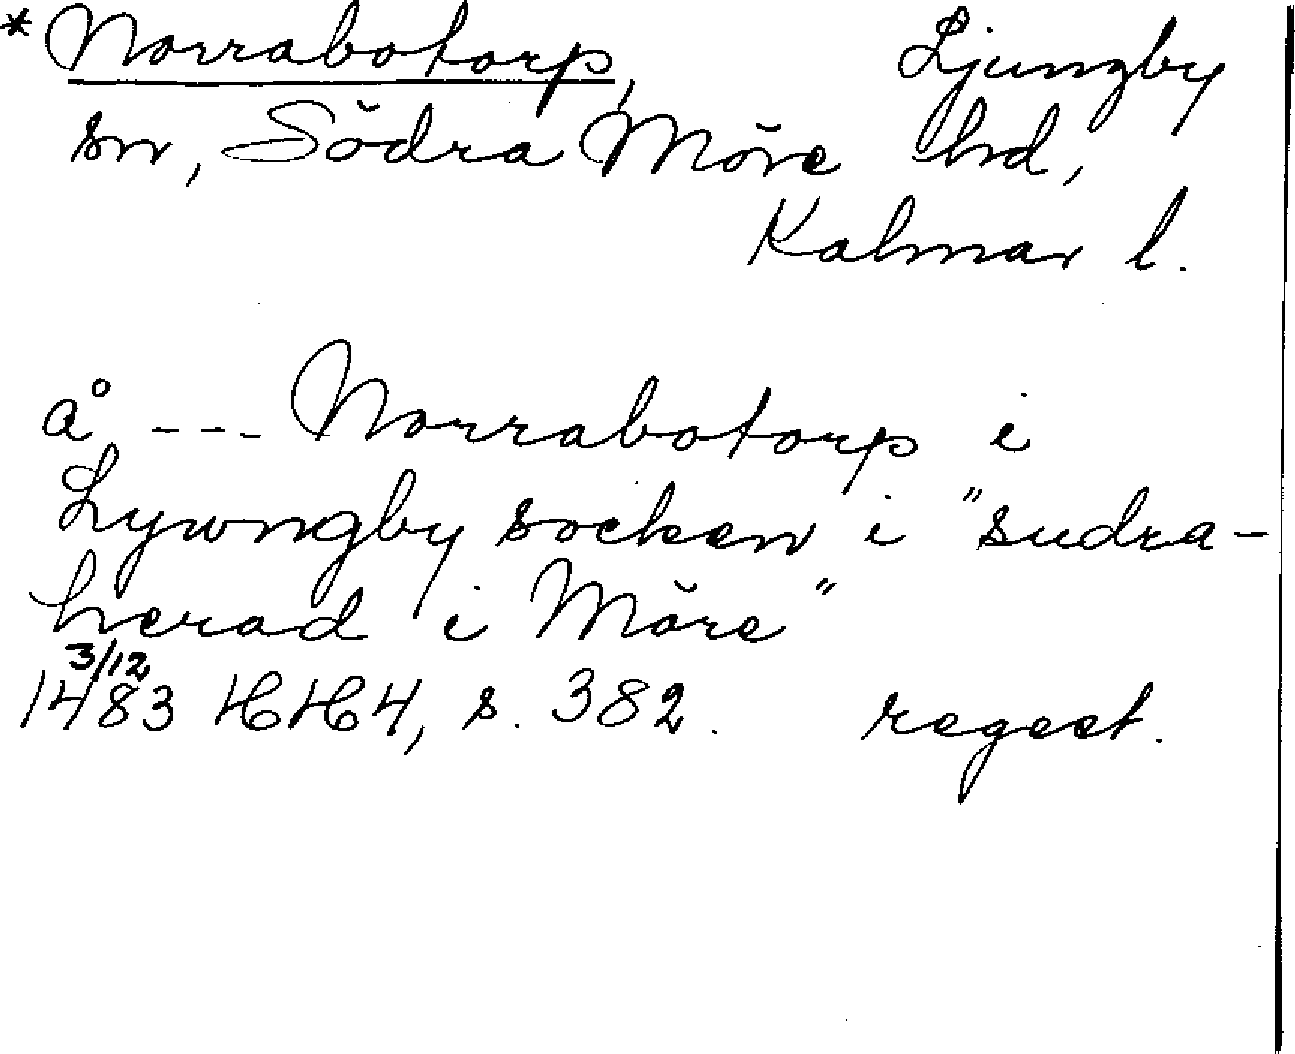 *Norrabotorp, Ljungby
sn, Södra Möre hd,
Kalmar l.
å --- Norrabotorp i
Lywngby socken i "sudra-
herad i Möre"
3/12
1483 HH 4, s. 382. regest.